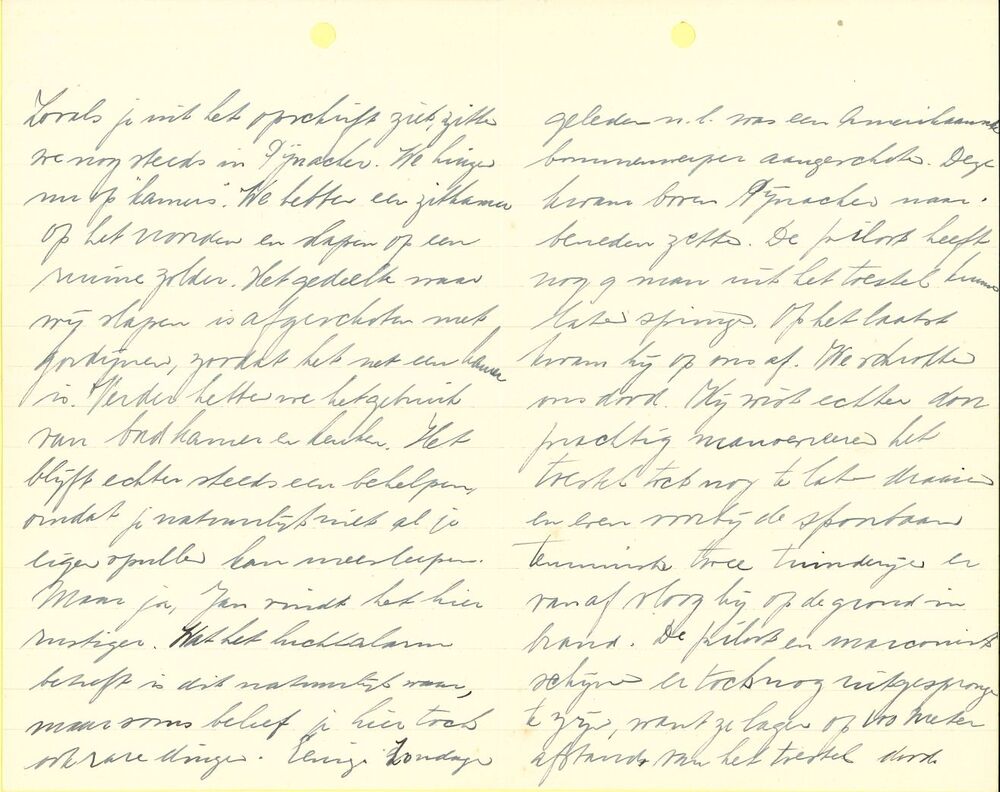 Zooals je uit het opschrift ziet, zitten
we nog steeds in Pijnacker. We
nu op "kamers". We hebben een zitkamer
op het noorden en slapen op een
ruime zolder. Het gedeelte waar
wij slapen is afgeschoten met
gordijnen, zoodat het net een kamer
is. Verder hebben we het gebruik
van badkamer en keuken. Het
blijft echter steeds een behelpen,
omdat je natuurlijk niet al je
eigen spullen kan meesleepen.
Maar ja, Jan vindt het hier
rustiger. Wat het luchtalarm
betreft is dit natuurlijk waar,
maar soms beleef je hier toch
ook rare dingen. Eenige Zondagen
geleden n.l. was een Amerikaansche
bommenwerper aangeschoten. Deze
kwam boven Pijnacker naar
beneden zetten. De piloot heeft
nog 9 man uit het toestel kunnen
laten springen. Op het laatst
kwam hij op ons af. We schrokken
ons dood. Hij wist echter door
prachtig manoevreeren het
toestel toch nog te laten draaien
en even voorbij de spoorbaan
tenminste twee tuinderijen er
vanaf vloog hij op de grond in
brand. De piloot en marconist
schijnen er toch nog uitgesprongen
te zijn, want ze lagen op 100 meter
afstand van het toestel dood.